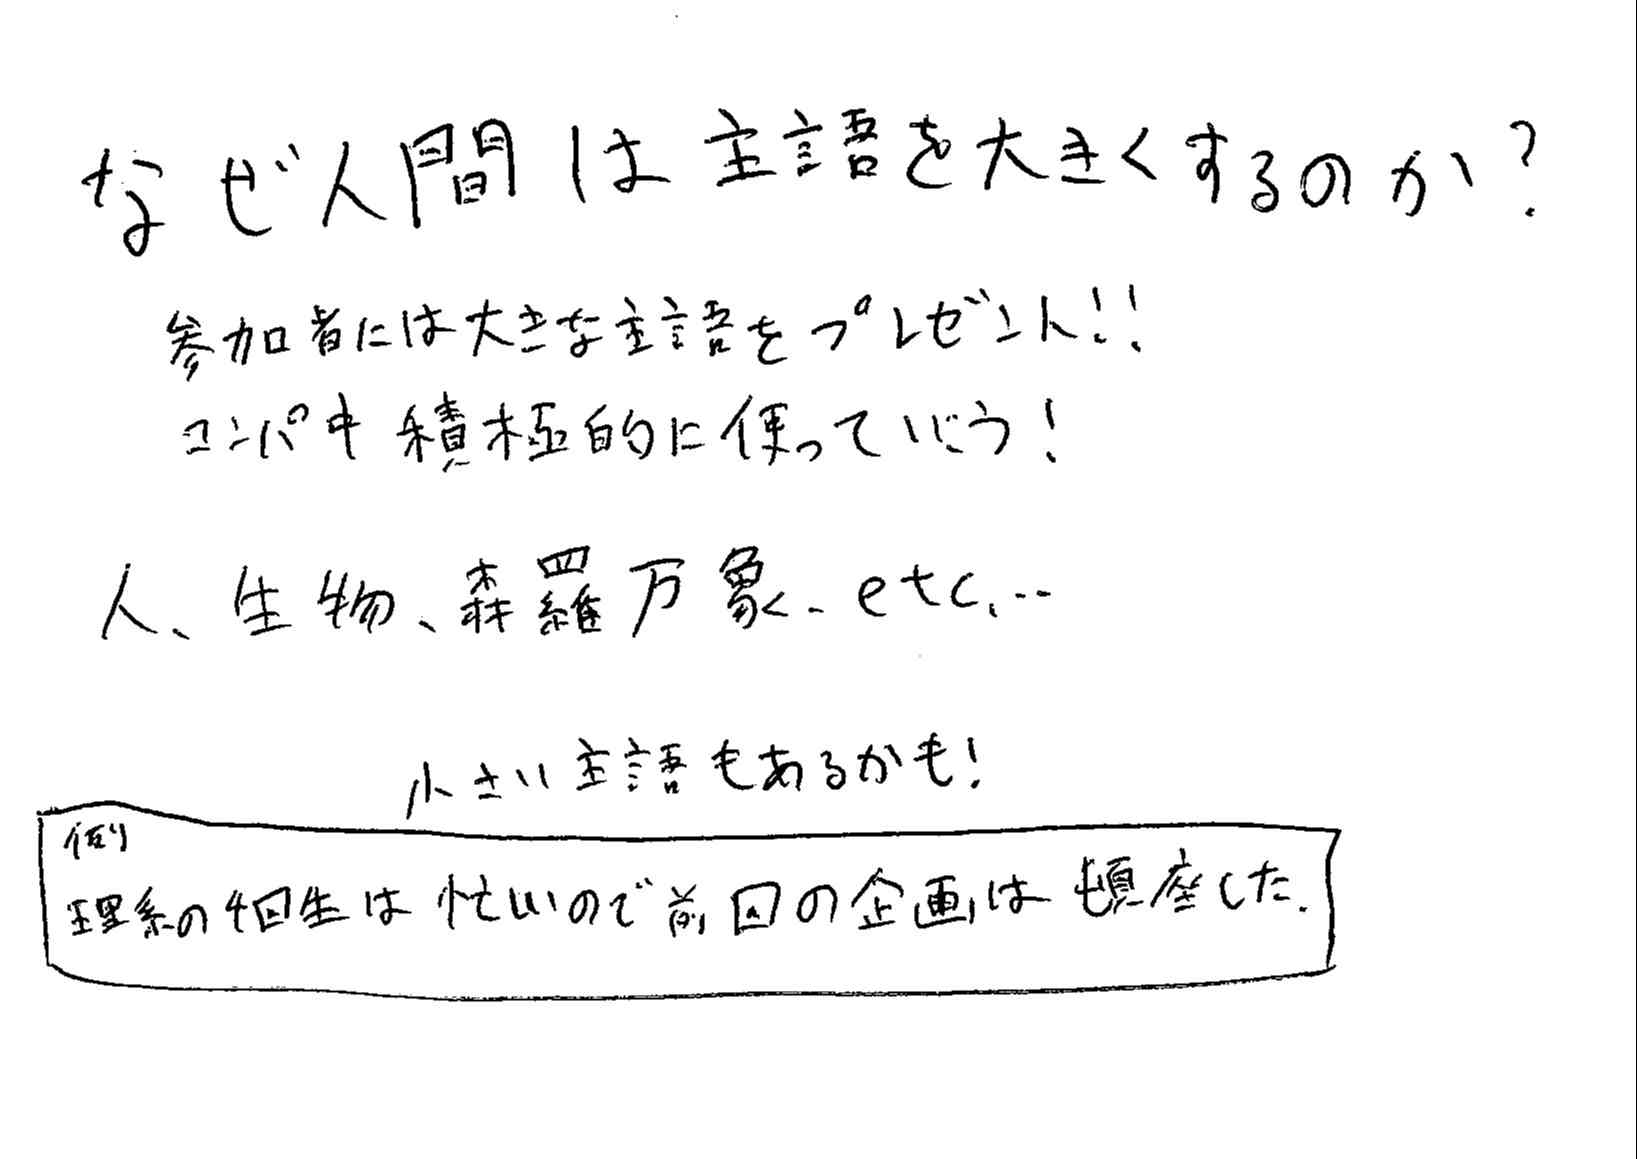 なぜ人間は主語を大きくするのか?
参加者には大きな主語をプレゼント!!
コンパ中積極的に使っていこう!
人、生物、森羅万象、etc...
小さい主語もあるかも!
例)
理系の4回生は忙しいので前回の企画は頓座した.